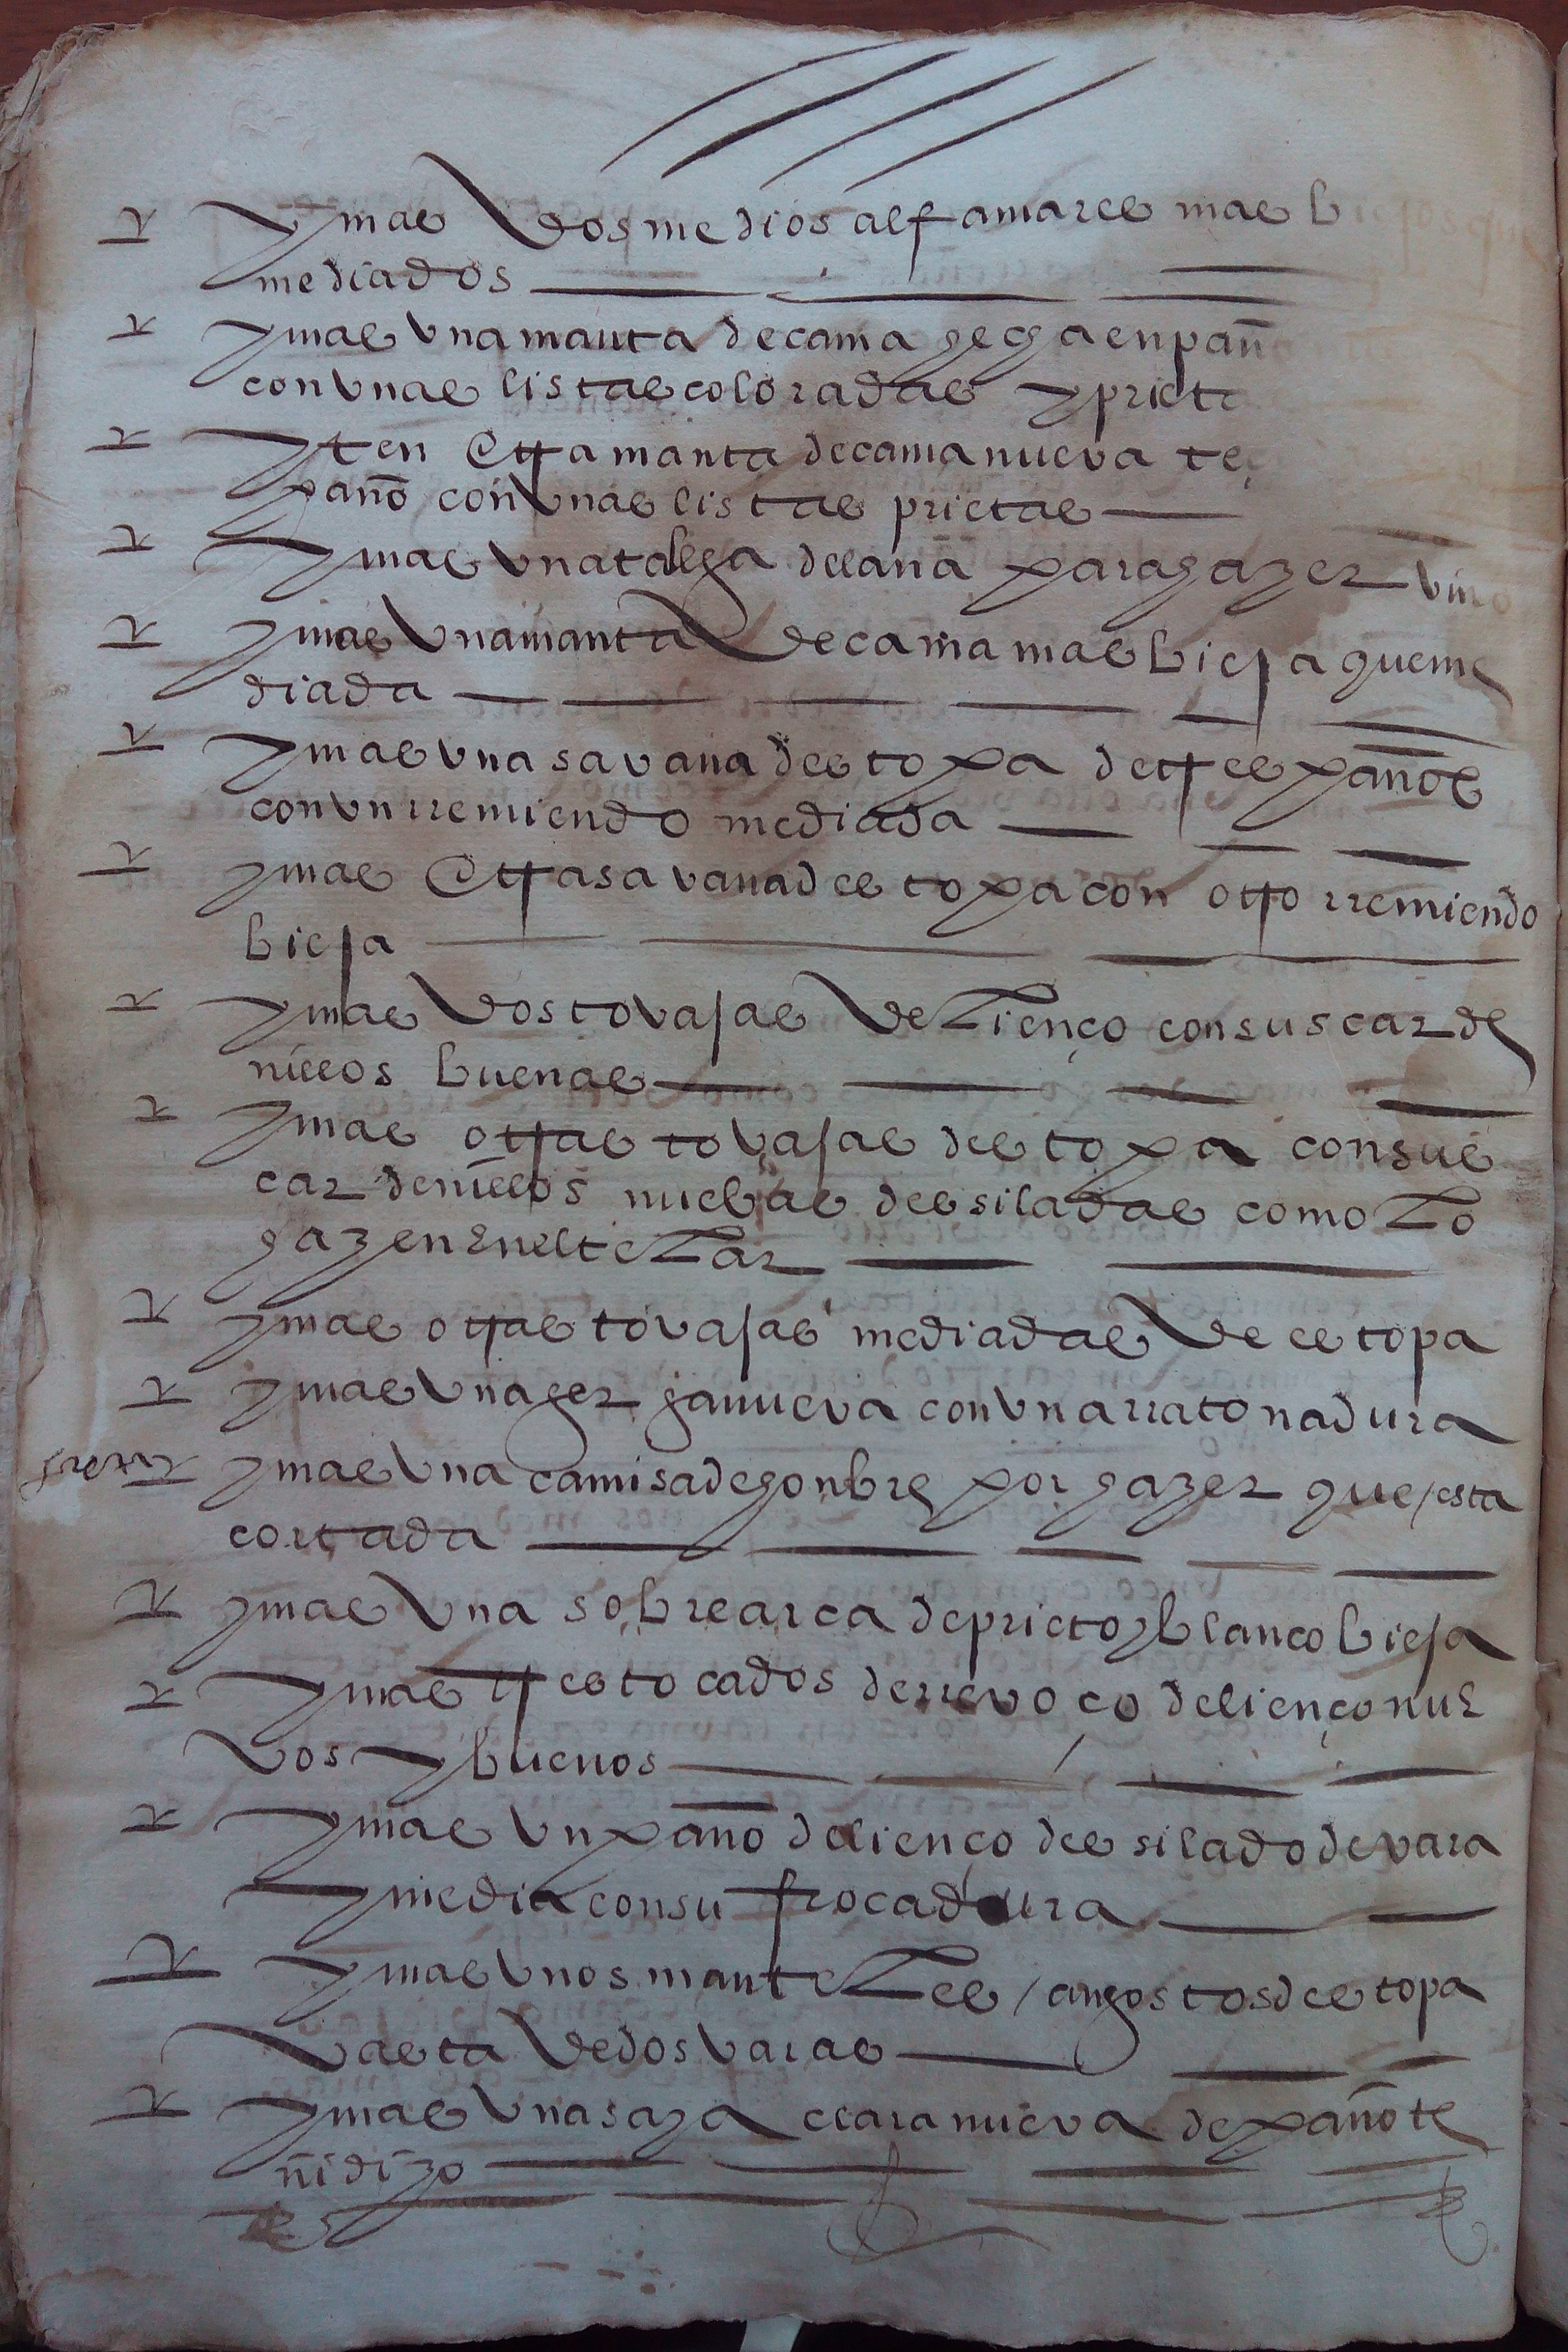 y mas dos medios alfamares mas biejos que
mediados
y mas una manta de cama hecha en pañ
con unas listas coloradas y priet
yten otra manta de cama nueva te
paño con unas listas prietas
y mas una talega de lana para hazer vino
y mas una manta de cama mas bieja que me
diada
y mas una savana destopa de tres paños
con un rremiendo mediada
y mas otra savana destopa con otro rremiendo
bieja
y mas dos tovajas de lienço con sus carde
nillos buenas
y mas otras tovajas destopa con sus
cardenillos nuebas desiladas como lo
hazen en el telar
y mas otras tovajas mediadas de estopa
y mas una herga nueva con una rratonadura
y mas una camisa de honbre por hazer que esta
cortada
y mas una sobrearca de prieto y blanco bieja
y mas tres tocados de rrevoço de lienço nue
vos y buenos
y mas un paño de lienço desilado de vara
y media con su frocadura
y mas unos manteles / angostos destopa
vasta de dos varas
y mas una saya clara nueva de paño te
ñidizo